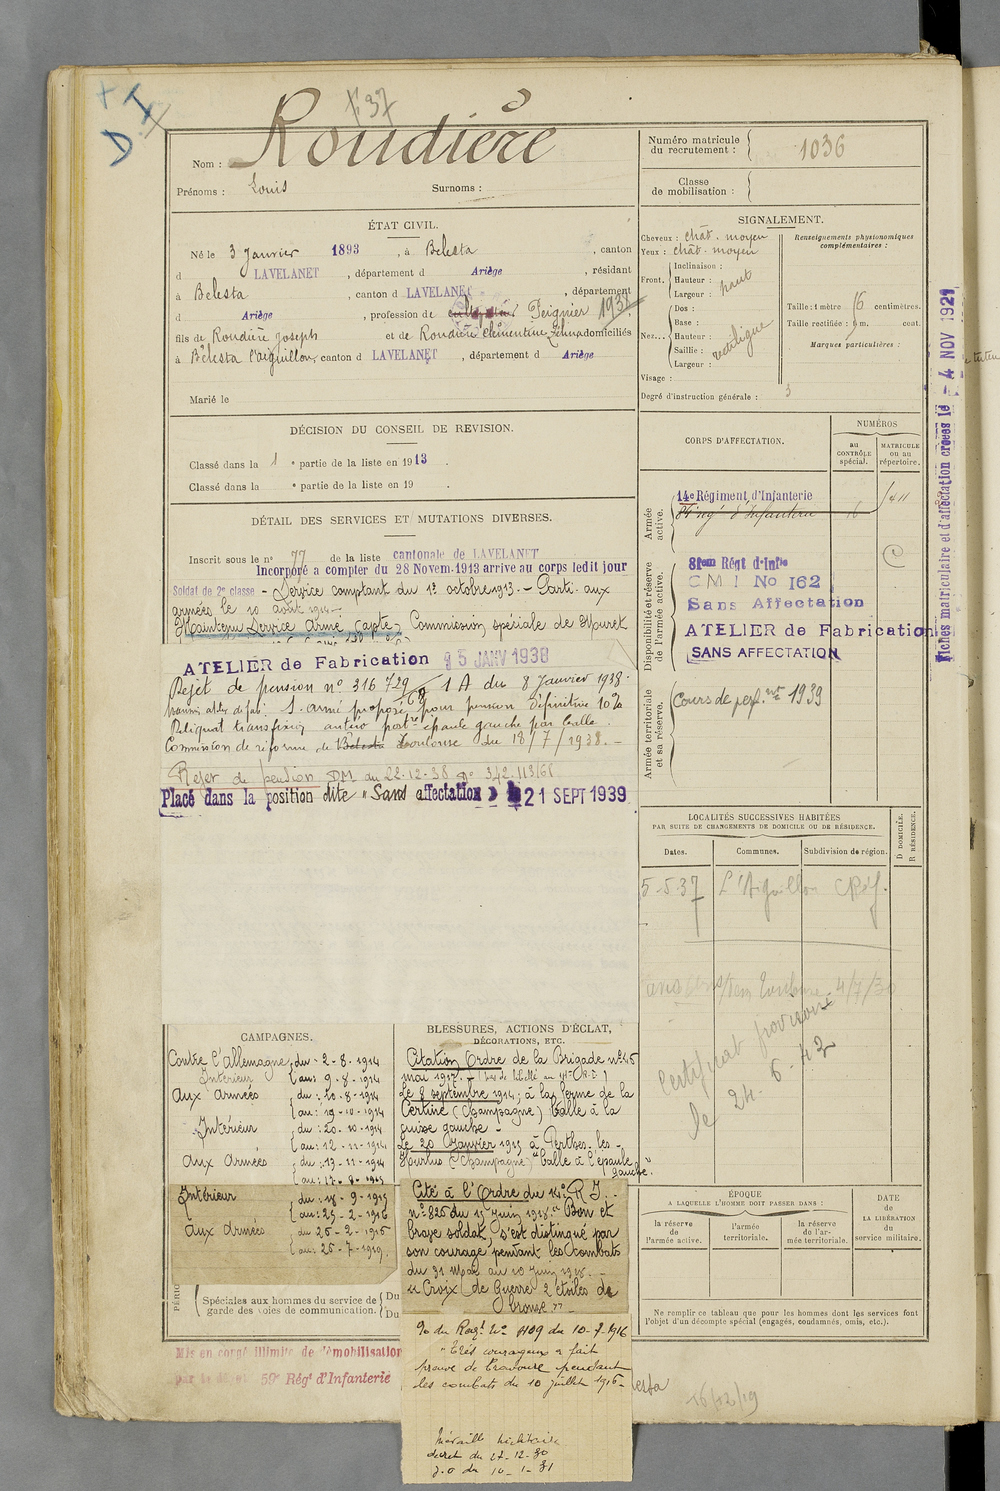 + I
D
F 37
Nom : Roudière
Prénoms : Louis Surnoms :
ÉTAT CIVIL.
Né le 3 Janvier 1893, à Belesta, canton
d LAVELANET, département d Ariège, résidant
à Belesta, canton d LAVELANET, département
d Ariège, profession de cultivateur Peignier 1938
fils de Roudière Joseph et de Roudière Clémentine domiciliés
à Bélesta l'aiguillon, canton d LAVELANET, département d Ariège
Marié le
DÉCISION DU CONSEIL DE REVISION.
Classé dans la 1 e partie de la liste en 1913.
Classé dans la e partie de la liste en 19 .
DÉTAIL DES SERVICES ET MUTATIONS DIVERSES.
Inscrit sous le n° 77 de la liste cantonale de LAVELANET
Incorporé a compter du 28 Novem. 1913 arrive au corps ledit jour
Soldat de 2e classe - Service comptant du 1er octobre 1913. - Parti aux
armées le 10 août 1914 -
Maintenu Service Armé (apte) Commission spéciale de Muret
ATELIER de Fabrication 25 JANV 1938
Rejet de pension n° 316 729/68 1 A du 8 Janvier 1938.
S. armé proposé pour pension définitive 10%
Reliquat transfixion antéro postre épaule gauche par balle.
Commission de réforme de Belesta Toulouse du 18/7/1938. -
Rejet de pension DM du 22-12-38 n° 342.113/68
Placé dans la position dite "Sans affectation" 21 SEPT 1939
CAMPAGNES.
Contre l'Allemagne, du - 2-8-1914
Intérieur au : 9-8-1914
Aux Armées du : 10-8-1914
au : 19-10-1914
Intérieur du : 20-10-1914
au : 12-11-1914
Aux Armées du : 13-11-1914
au : 17-9-1915
Intérieur du : 18-9-1915
au : 25-2-1916
aux Armées du 26-2-1916
au : 26-7-1919
PÉRIO
Spéciales aux hommes du service de garde des voies de communication. Du
Du
Mis en congé illimité de démobilisation
par le dépôt 59e Régt d'Infanterie
BLESSURES, ACTIONS D'ÉCLAT,
DÉCORATIONS, ETC.
Citation Ordre de la Brigade n° 45
mai 1917. -
Le 8 septembre 1914, à la ferme de la
Certine (Champagne) balle à la
cuisse gauche -
Le 20 Janvier 1915 à Perthes-les-
Hurlus (Champagne) balle à l'épaule
gauche.
Cité à l'Ordre du 14e R I. -
n° 826 du 15 Juin 1918 "Bon et
brave soldat, s'est distingué par
son courage pendant les combats
du 31 Mai au 10 Juin 1918. -
"Croix de Guerre 2 étoiles de
bronze" -
O. du Regt N° 1109 du 10-7-1916
"Très courageux a fait
preuve de bravoure pendant
les combats du 10 juillet 1916 -
Médaille Militaire
décret du 27-12-30
J.O du 10-1-31
Numéro matricule du recrutement : 1036
Classe de mobilisation :
SIGNALEMENT.
Cheveux : chât. moyen
Yeux : chât. moyen
Front. Inclinaison :
Hauteur : haut
Largeur :
Nez... Dos :
Base :
Hauteur : rectiligne
Saillie :
Largeur :
Visage :
Renseignements physionomiques complémentaires :
Taille : 1 mètre 6 centimètres.
Taille rectifiée : 1 m. cent.
Marques particulières :
Degré d'instruction générale : 3
CORPS D'AFFECTATION.
NUMÉROS
au CONTRÔLE spécial.
MATRICULE ou au répertoire.
Armée active.
14e Régiment d'Infanterie 16 411
Disponibilité et réserve de l'armée active.
81eme Régt d'Infie
C M I No 162
Sans Affectation
ATELIER de Fabrication
SANS AFFECTATION
Armée territoriale et sa réserve.
Cours de perf. nt 1939
LOCALITÉS SUCCESSIVES HABITÉES
PAR SUITE DE CHANGEMENTS DE DOMICILE OU DE RÉSIDENCE.
Dates. Communes. Subdivision de région. D DOMICILE. R RÉSIDENCE.
5-5-37 L'Aiguillon
Toulouse 4/7/30
Certificat provisoire
le 24-6-42
ÉPOQUE
A LAQUELLE L'HOMME DOIT PASSER DANS :
la réserve de l'armée active.
l'armée territoriale.
la réserve de l'armée territoriale.
DATE DE LA LIBÉRATION du service militaire.
Ne remplir ce tableau que pour les hommes dont les services font
l'objet d'un décompte spécial (engagés, condamnés, omis, etc.).
16/12/19
Fiches matriculaire et d'affectation créées le - 4 NOV 1921